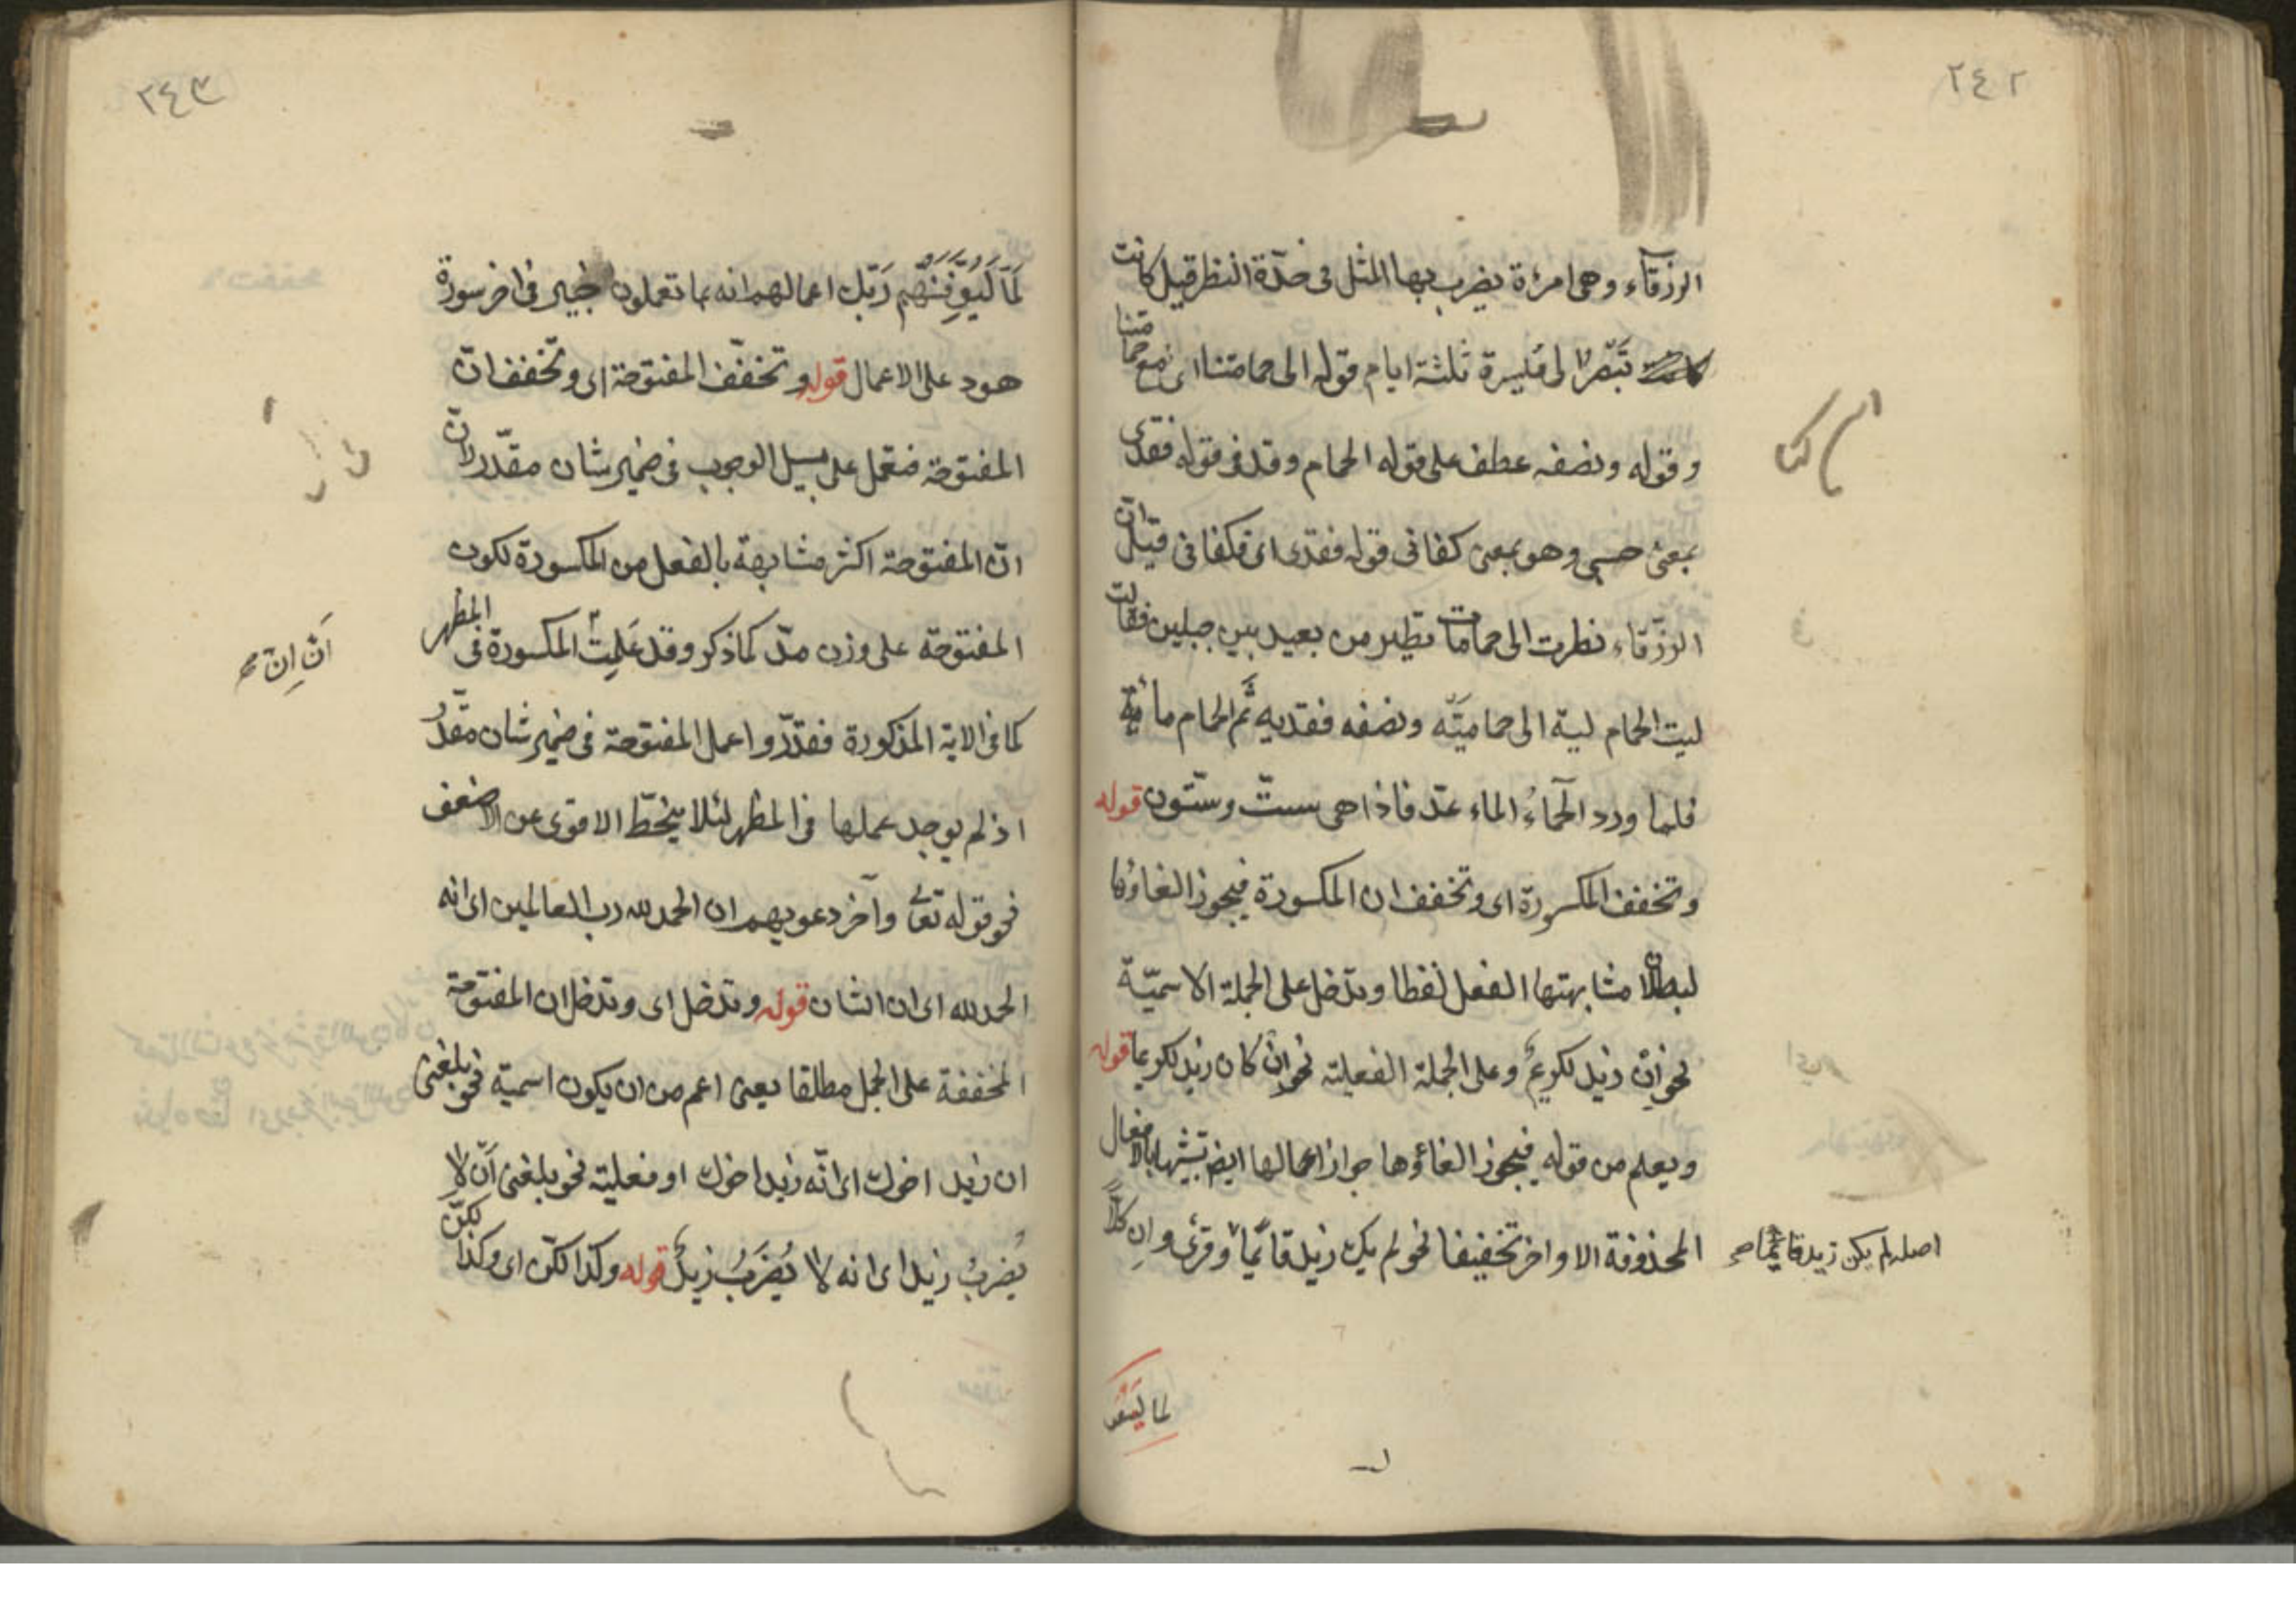 ٢٤٢
الزرقآء وهى امرءة يضرب بها المثل فى حدّة النظر قيل كانت
تبصر الى مسيرة ثلثة ايام قوله الى حمامتنا اى مع حمامتنا
وقوله ونصفه عطف على قوله الحمام وقد فى قوله فقدى
بمعنى حسبى وهو بمعنى كفانى قوله فقدى اى فكفانى قيل ان
الزرّقاء نظرت الى حمامات تطير من بعيد بين جبلين فقالت
ليت الحمام ليه الى حمامتيّه ونصفه فقديه ثَم الحمام مائية
فلما ورد الحمام الماء عدّ فاذا هى ستّ وستّون قوله
وتخفف المكسورة اى وتخفف ان المكسورة فيجوز الغاؤها
لبطلان مشابهتها الفعل لفظا وتدخل على الجملة الاسميّة
نحو اِن زيد لكريمٌ وعلى الجملة الفعلية نحو اِن كان زيد لكريما قوله
ويعلم من قوله فيجوز الغاؤها جواز اعمالها ايضا تشبيها بالافعال
المحذوفة الاواخر تخفيفا نحو لم يك زيد قائما وقرئ وان كلاًّ
اصله لم يكن زيد قائما صح
لما ليوَ
٢٤٣
لَمَّا لَيُوَفِّيَنَّهُم رَبّك اعمالهم انه بما تعملون خبير فى اخر سورة
هود على الاعمال قوله وتخفّف المفتوحة اى وتخفف انّ
المفتوحة فتعمل على سبيل الوجوب فى ضمير شان مقدّر لان
انّ المفتوحة اكثر مشابهة بالفعل من المكسورة لكون
المفتوحة على وزن مدّ كما ذكر وقد عَمِلتْ المكسورة فى المظهر
اَنّ اِنّ صح
كما فى الاية المذكورة فقدّروا عمل المفتوحة فى ضمير شان مقدّر
اذ لم يوجد عملها فى المظهر لئلا ينحطّ الاقوى عن الاضعف
نحو قوله تعالى وآخر دعويهم ان الحمد لله رب العالمين اى انه
الحمد لله اى ان الشان قوله وتدخل اى وتدخل ان المفتوحة
المخففة على الجمل مطلقا يعنى اعم من ان يكون اسمية نحو بلغنى
ان زيد اخوك اى انّه زيد اخوك او فعلية نحو بلغنى اَنْ لا
يضربُ زيد اى انه لا يُضرَبُ زيدٌ قوله وكذا لكنّ اى وكذا لكنّ